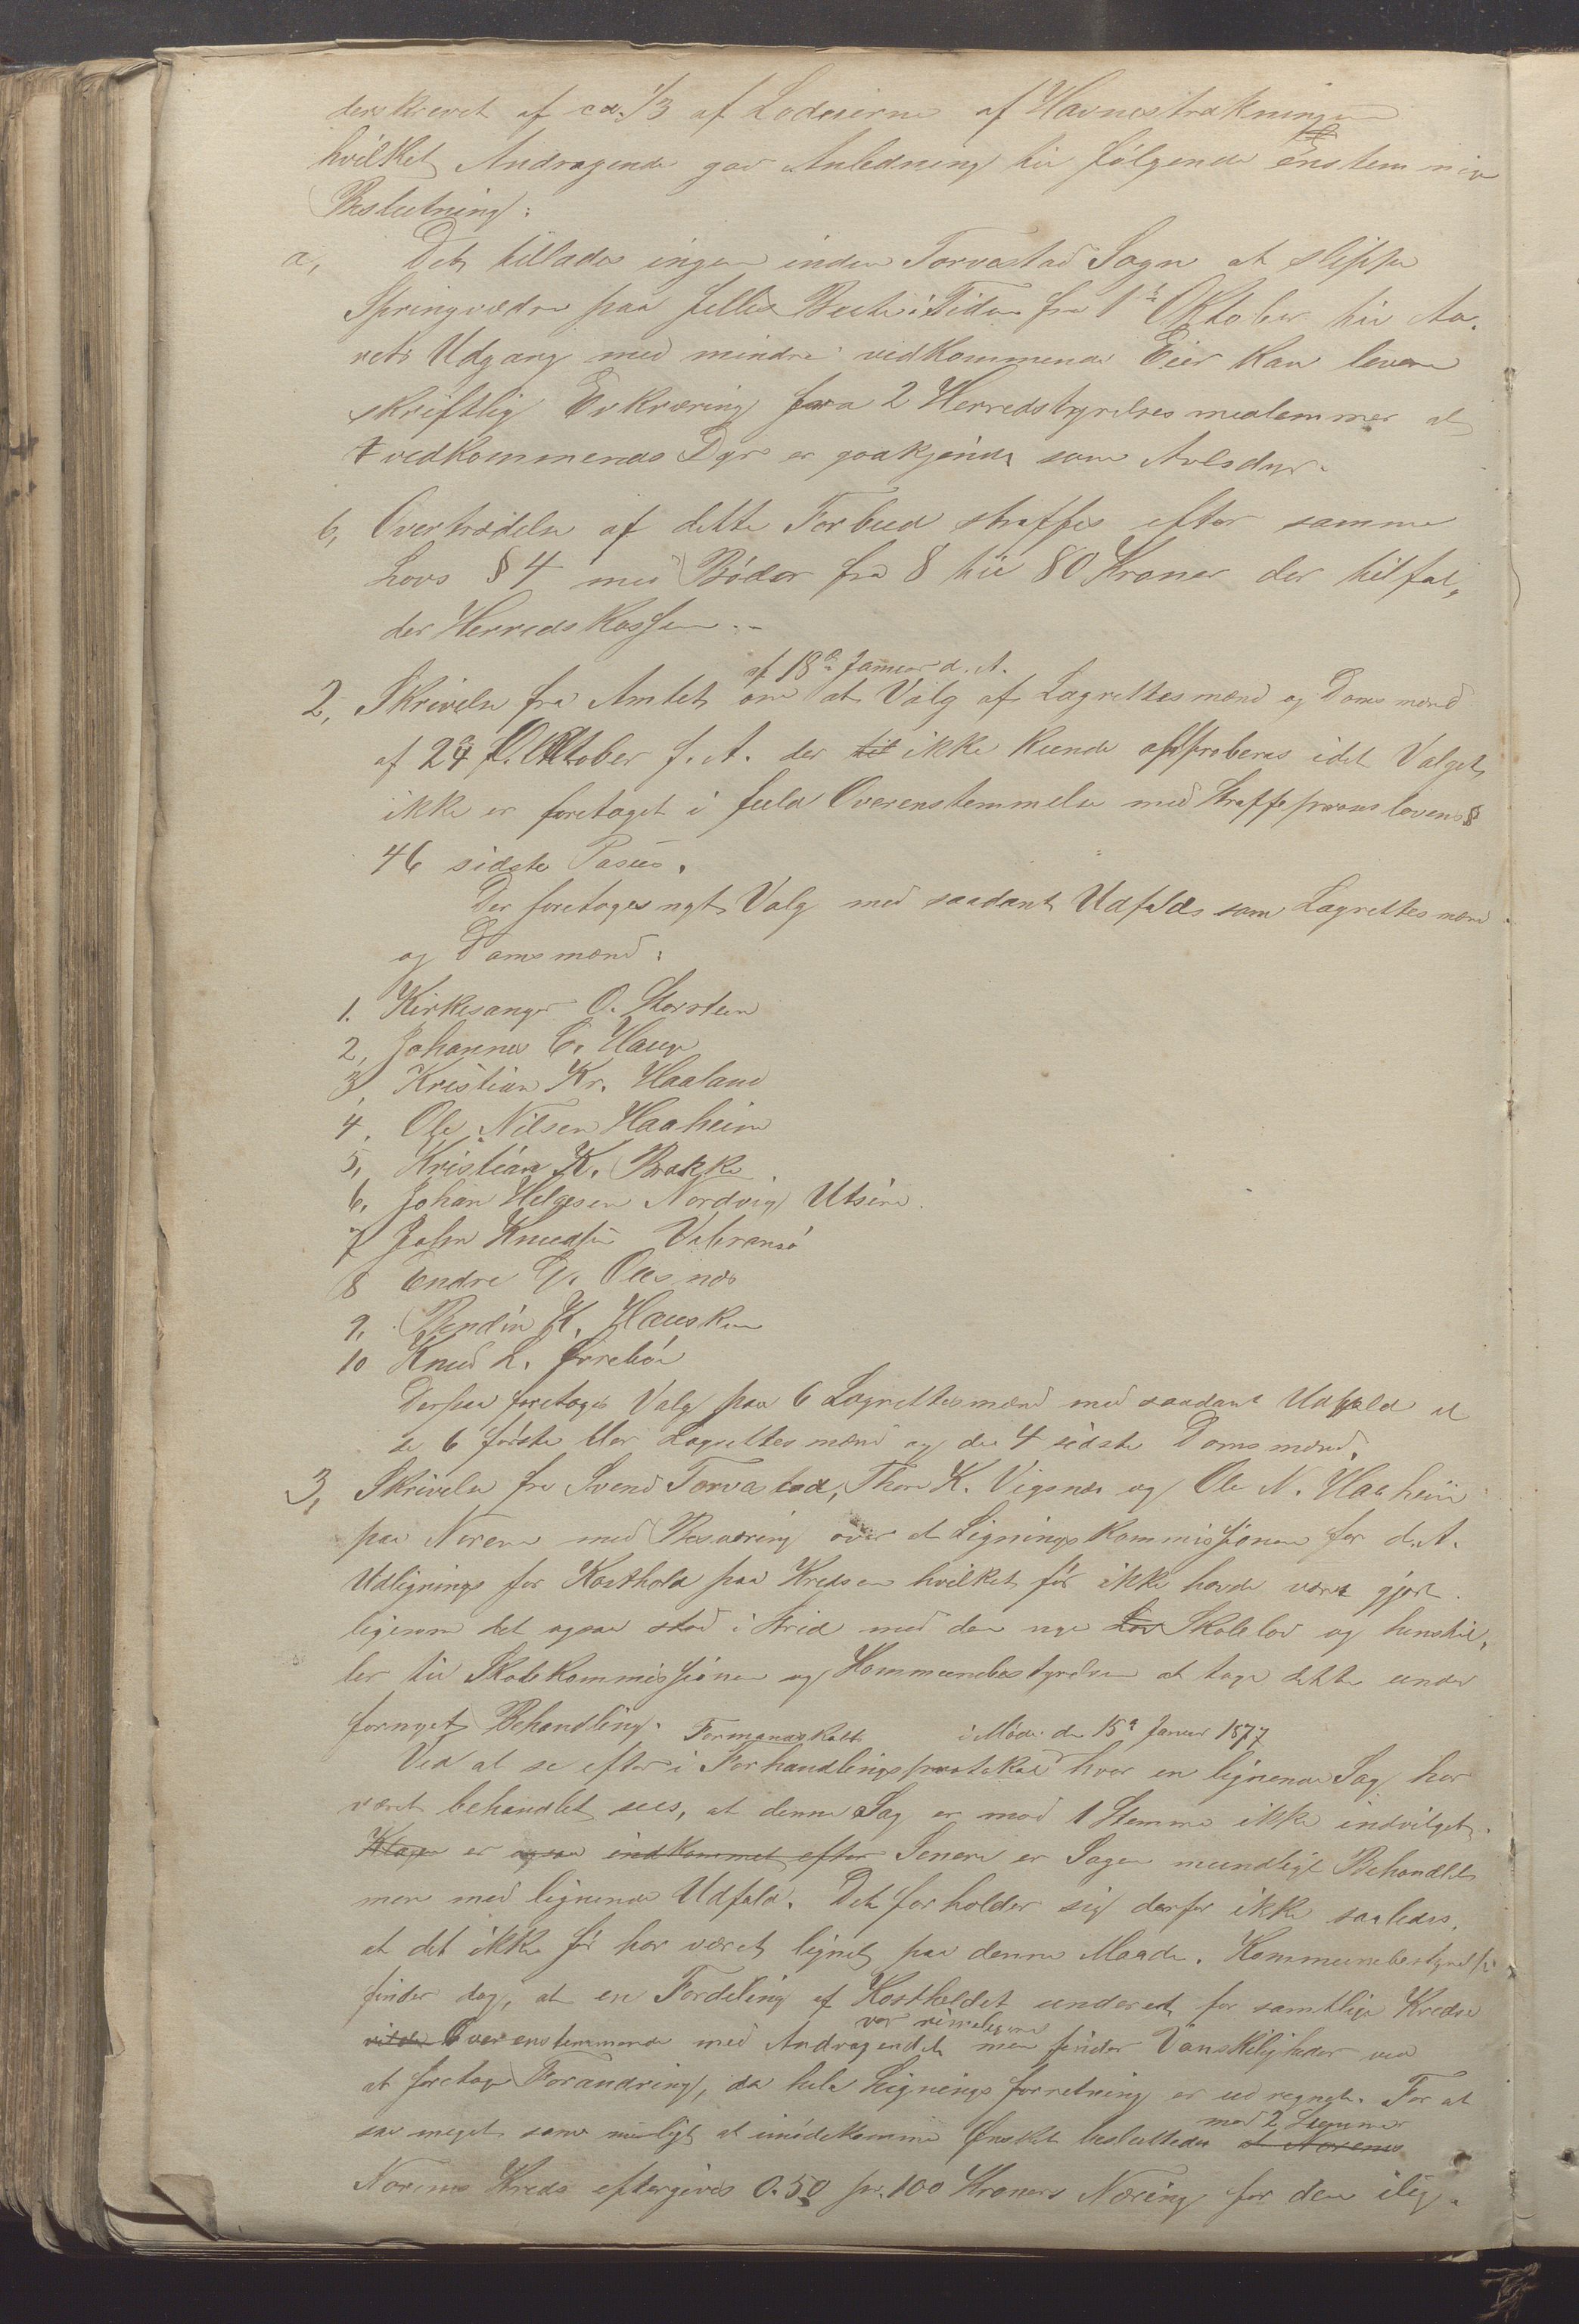 derskrevet af ca. 1/3 af Lodeierne af Havnestrækningen
hvilket Andragende gav Anledning til følgende enstemmig
Beslutning:
a, Det tillades ingen inden Torvestad Sogn at slippe
Springvædre paa fælles Beite i Tiden fra 1ste Oktober til Aa-
rets Udgang med mindre vedkommende Eier kan levere
skriftlig Erkræring fra 2 Herredstyrelses medlemmer at
vedkommendes Dyr er godkjendt som Avlsdyr.
b, Overtrædelse af dette Forbud straffes efter samme
Lovs § 4 med Bøder fra 8 til 80 Kroner der tilfal-
der Herredskassen.-
af 18de Januar d. A.
2, Skrivelse fra Amtet om at Valg af Lagrettesmænd og Domsmænd
af 29 Oktober f. A. der til ikke kunde approberes idet Valget
ikke er foretaget i fuld Overenstemmelse med Straffeproceslovens §
46 sidste Pasus.
Der foretages nyt Valg med saadant Udfald som Lagrettesmænd
og Domsmænd:
1. Kirkesanger O. Storsteen
2, Johannes C. Hauge
3, Kristian Kr. Haaland
4, Ole Nilsen Haaheim
5, Kristian K. Bakke
6, Johan Helgesen Nordvig Utsire.
7 John Knudsen Vibransø
8 Endre G. Olesnes
9, Bendin K. Hausken
10 Knud L. Førrebøe
Derpaa foretages Valg paa 6 Lagrettesmænd med saadant Udfald at
de 6 første blev Lagrettesmænd og de 4 sidste Domsmænd.
3, Skrivelse fra Svend Torvestad, Thore K. Vigsnes og Ole N. Haaheim
paa Norem med Besværing over at Ligningskommissionen for d. A.
Udlignings for Kosthold paa Kredsen hvilket før ikke havde været gjort
ligesom det ogsaa stod i Strid med den nye Lov Skolelov og henstil-
ler til Skolekommissionen og Kommunebestyrelsen at tage dette under
fornyet Behandling.
Formandskabets i Møde den 15de Januar 1877
Ved at se efter i Forhandlingsprotokol hvor en lignende Sag har
været behandlet sees, at denne Sag er mod 1 Stemme ikke indvilget.
Klagen er ogsaa indkommet efter Senere er Sagen mundligt Behandlet
men med lignende Udfald. Det forholder sig derfor ikke saaledes,
at det ikke før har været lignet paa denne Maade. Kommunebestyrelsen
finder dog, at en Fordeling af Kostholdet underet for samtlige Kredse
var rimeligere
vilde Overenstemmende med Andragendet men finder Vanskeligheder ved
at foretage Forandring, da hele Ligningsforretning er udregnet. For at
med 2 Stemmer
saa meget som muligt at imødekomme Ønsket besluttedes at Norems
Norems Kreds eftergives 0.50 pr. 100 Kroners Næring for den ilig-